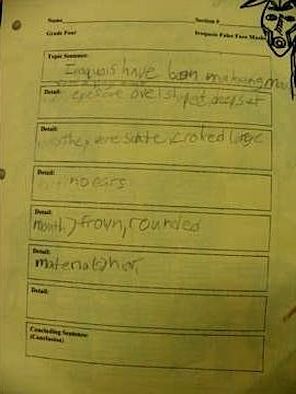 Name
Section #
Grade Four
Iroquois False Face Masks
Topic Sentence:
Iroquois have been makeing mas
Detail:
eyes are ovel shaped, deep set
Detail:
they are straite, croked large
Detail:
no ears
Detail:
month) frown, rounded
Detail:
materials) hair,
Detail:
Concluding Sentence:
(Conclusion)